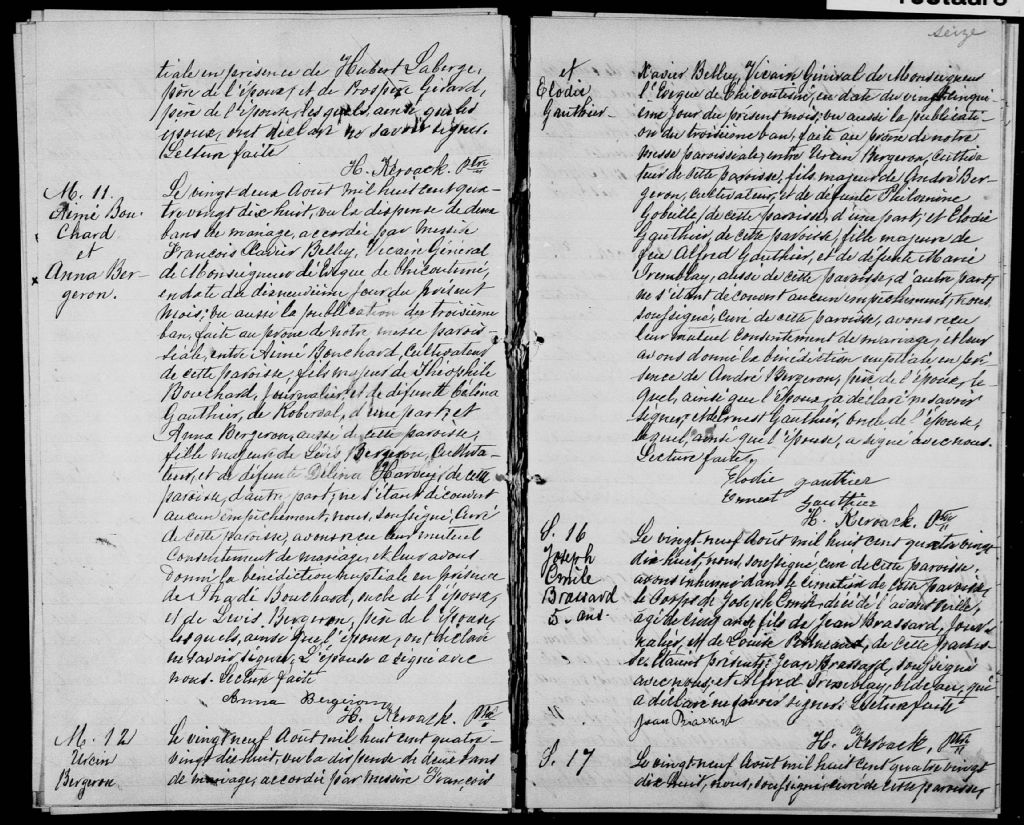 seize
tiale en présence de Hubert Laberge,
père de l'époux, et de Prospère Girard,
père de l'épouse, lesquels, ainsi que les
époux, ont déclaré ne savoir signer.
Lecture faite
H. Kéroack. Ptre
M. 11.
Aimé Bou-
chard
et
Anna Ber-
geron.
Le vingt deux Août mil huit cent qua-
tre vingt dix huit, vu la dispense de deux
bans de mariage, accordée par messire
François Xavier Belley, Vicaire Général
de Monseigneur de l'Evêque de Chicoutimi,
en date du dixneuvième jour du présent
mois; vu aussi la publication du troisième
ban, faite au prône de notre messe parois-
siale, entre Aimé Bouchard, Cultivateur
de cette paroisse, fils majeur de Théophile
Bouchard, journalier, et de défunte Célina
Gauthier, de Roberval, d'une part, et
Anna Bergeron, aussi de cette paroisse,
fille majeure de Lévis Bergeron, Cultiva-
teur, et de défunte Délina Harvey, de cette
paroisse, d'autre part; ne s'étant découvert
aucun empêchement, nous, soussigné, Curé
de cette paroisse, avons reçu leur mutuel
consentement de mariage, et leur avons
donné la bénédiction nuptiale en présence
de Bouchard, oncle de l'époux,
et de Lévis Bergeron, père de l'épouse,
lesquels, ainsi que l'époux, ont déclaré
ne savoir signer. L'épouse a signé avec
nous. Lecture faite
Anna Bergeron
H. Kéroack. Ptre
M. 12
Urcin
Bergeron
Le vingt neuf Août mil huit cent quatre-
vingt dix huit, vu la dispense de deux bans
de mariage, accordée par messire François
et
Elodie
Gauthier
Xavier Belley, Vicaire Général de Monseigneur
l'Evêque de Chicoutimi, en date du vingt cinqui-
ème jour du présent mois; vu aussi la publicati-
on du troisième ban, faite au prône de notre
messe paroissiale, entre Urcin Bergeron, cultiva-
teur de cette paroisse, fils majeur de André Ber-
geron, cultivateur, et de défunte Philomène
Gobeille, de cette paroisse, d'une part, et Elodie
Gauthier, de cette paroisse, fille majeure de
feu Alfred Gauthier, et de défunte Marie
Tremblay, aussi de cette paroisse, d'autre part;
ne s'étant découvert aucun empêchement, nous
soussigné, curé de cette paroisse, avons reçu
leur mutuel consentement de mariage, et leur
avons donné la bénédiction nuptiale en pré-
sence de André Bergeron, père de l'époux, le-
quel, ainsi que l'époux, a déclaré ne savoir
signer, et d'Ernest Gauthier, oncle de l'épouse,
lequel, ainsi que l'épouse, a signé avec nous.
Lecture faite.
Elodie Gauthier
Ernest Gauthier
H. Kéroack. Ptre
S. 16
Joseph
Emile
Brassard
5. ans
Le vingt neuf Août mil huit cent quatre vingt
dix huit, nous, soussigné curé de cette paroisse,
avons inhumé dans le cimetière de cette paroisse,
le corps de Joseph Emile, décédé l'avant veille,
âgé de cinq ans, fils de Jean Brassard, jour-
nalier, et de Louise de cette parois-
se. Etaient présents: Jean Brassard, soussigné
avec nous, et Alfred Tremblay, bedeau, qui
a déclaré ne savoir signer. Lecture faite
Jean Brassard
H. Kéroack, Ptre
S. 17
Le vingt neuf Août mil huit cent quatre vingt
dix huit, nous, soussigné, curé de cette paroisse,